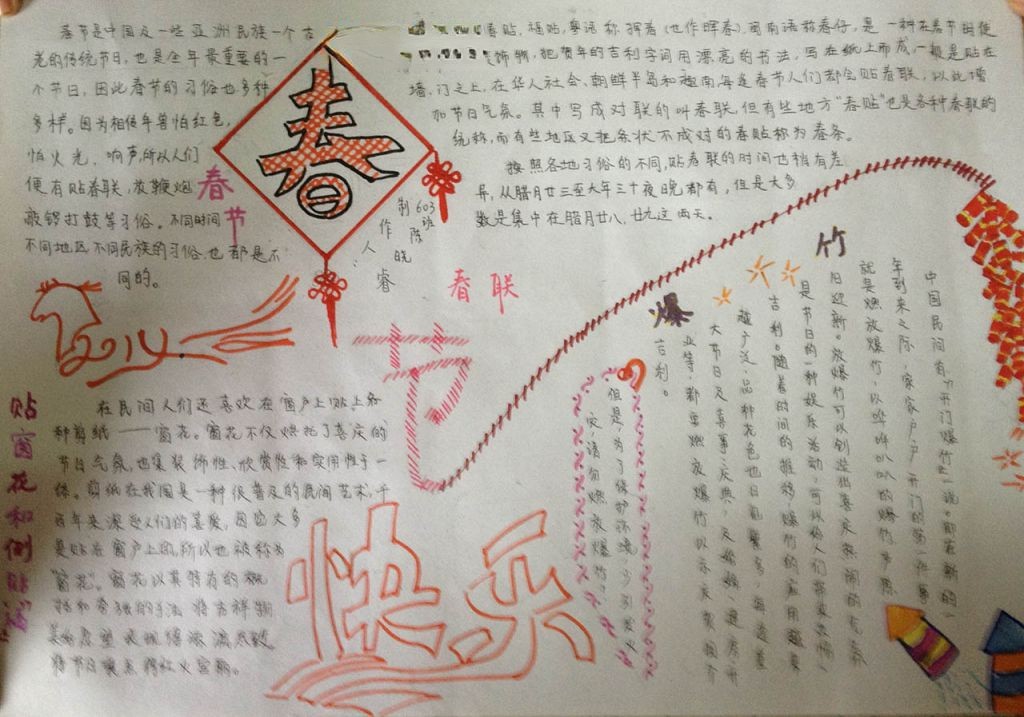 春节是中国及一些亚洲民族一个古
老的传统节日,也是全年最重要的一
个节日,因此春节的习俗也多种
多样。因为相传年兽怕红色,
怕火光、响声,所以人们
便有贴春联,放鞭炮
敲锣打鼓等习俗。不同时间
不同地区,不同民族的习俗也都是不
同的。
春节
春
制作人
603班
陈晓睿
春贴,福贴,粤语称挥春(也作晖春)闽南语称春仔,是一种在春节时使
饰物,把贺年的吉利字词用漂亮的书法,写在纸上而成,一般是贴在
墙,门之上,在华人社会、朝鲜半岛和越南每逢春节人们都会贴春联,以此增
加节日气氛。其中写成对联的叫春联,但有些地方"春贴"也是各种春联的
统称,而有些地区又把条状不成对的春贴称为春条。
按照各地习俗的不同,贴春联的时间也稍有差
异,从腊月廿三至大年三十夜晚都有,但是大多
数是集中在腊月廿八,廿九这两天。
春联
节
快乐
2014
爆竹
中国民间有"开门爆竹"一说。即在新的一
年到来之际,家家户户开门的第一件事
就是燃放爆竹,以哔哔叭叭的爆竹声
旧迎新。放爆竹可以创造出喜庆热闹的气氛
是节日的一种娱乐活动,可以给人们带来欢愉
吉利。随着时间的推移,爆竹的应用越来
越广泛,品种花色也日见繁多,每逢重
大节日及喜事庆典,及婚嫁、建房、开
业等,都要燃放爆竹以示庆贺,图个
吉利。
但是,为了保护环境,少引发火
灾,请勿燃放爆竹。
贴窗花和倒贴"福"
在民间人们还喜欢在窗户上贴上各
种剪纸——窗花。窗花不仅烘托了喜庆的
节日气氛,也集装饰性、欣赏性和实用性于一
体。剪纸在我国是一种很普及的民间艺术,千
百年来深受人们的喜爱,因它大多
是贴在窗户上的,所以也被称为
"窗花"。窗花以其特有的概
括和夸张的手法将吉祥物
美好愿望表现得淋漓尽致
将节日装点得红火富丽。